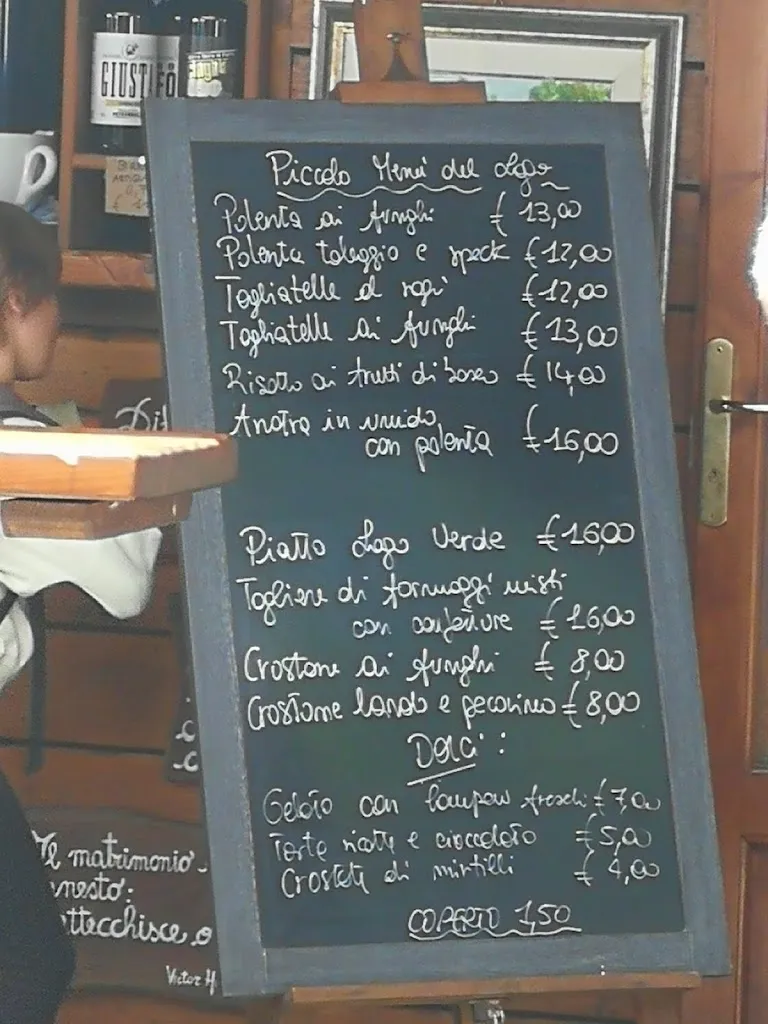 GIUSTI FÓ
Piccolo Menù del Lago
Polenta ai funghi € 13,00
Polenta taleggio e speck € 12,00
Tagliatelle al ragù € 12,00
Tagliatelle ai funghi € 13,00
Risotto ai frutti di bosco € 14,00
Anatra in umido
con polenta € 16,00
Piatto Lago Verde € 16,00
Tagliere di formaggi misti
con confetture € 16,00
Crostone ai funghi € 8,00
Crostone lardo e pecorino € 8,00
Dolci:
Gelato con lamponi freschi € 7,00
Torta ricotta e cioccolato € 5,00
Crostata di mirtilli € 4,00
COPERTO 1,50
Il matrimonio
nesto:
ttecchisce o
Victor H.